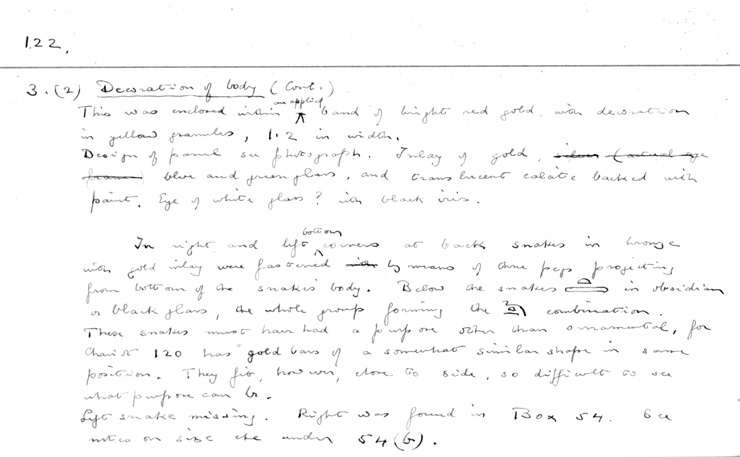 122.
3. (2) Decoration of body (Cont.)
This was enclosed within an applied band of bright red gold, with decoration
in yellow granules, 1.2 in width.
Design of panel see photograph. Inlay of gold, silver (actual eye
frame) blue and green glass, and translucent calcite backed with
paint. Eye of white glass? with black iris.
In right and left bottom corners at back snakes in bronze
with gold inlay were fastened by means of three pegs projecting
from bottom of the snakes' body. Below the snakes in obsidian
or black glass, the whole group forming the combination.
These snakes must have had a purpose other than ornamental, for
Chair 120 has gold bars of a somewhat similar shape in same
position. They fit, however, close to side, so difficult to see
what purpose can be.
Left snake missing. Right was found in Box 54. See
notes on size etc under 54(G).